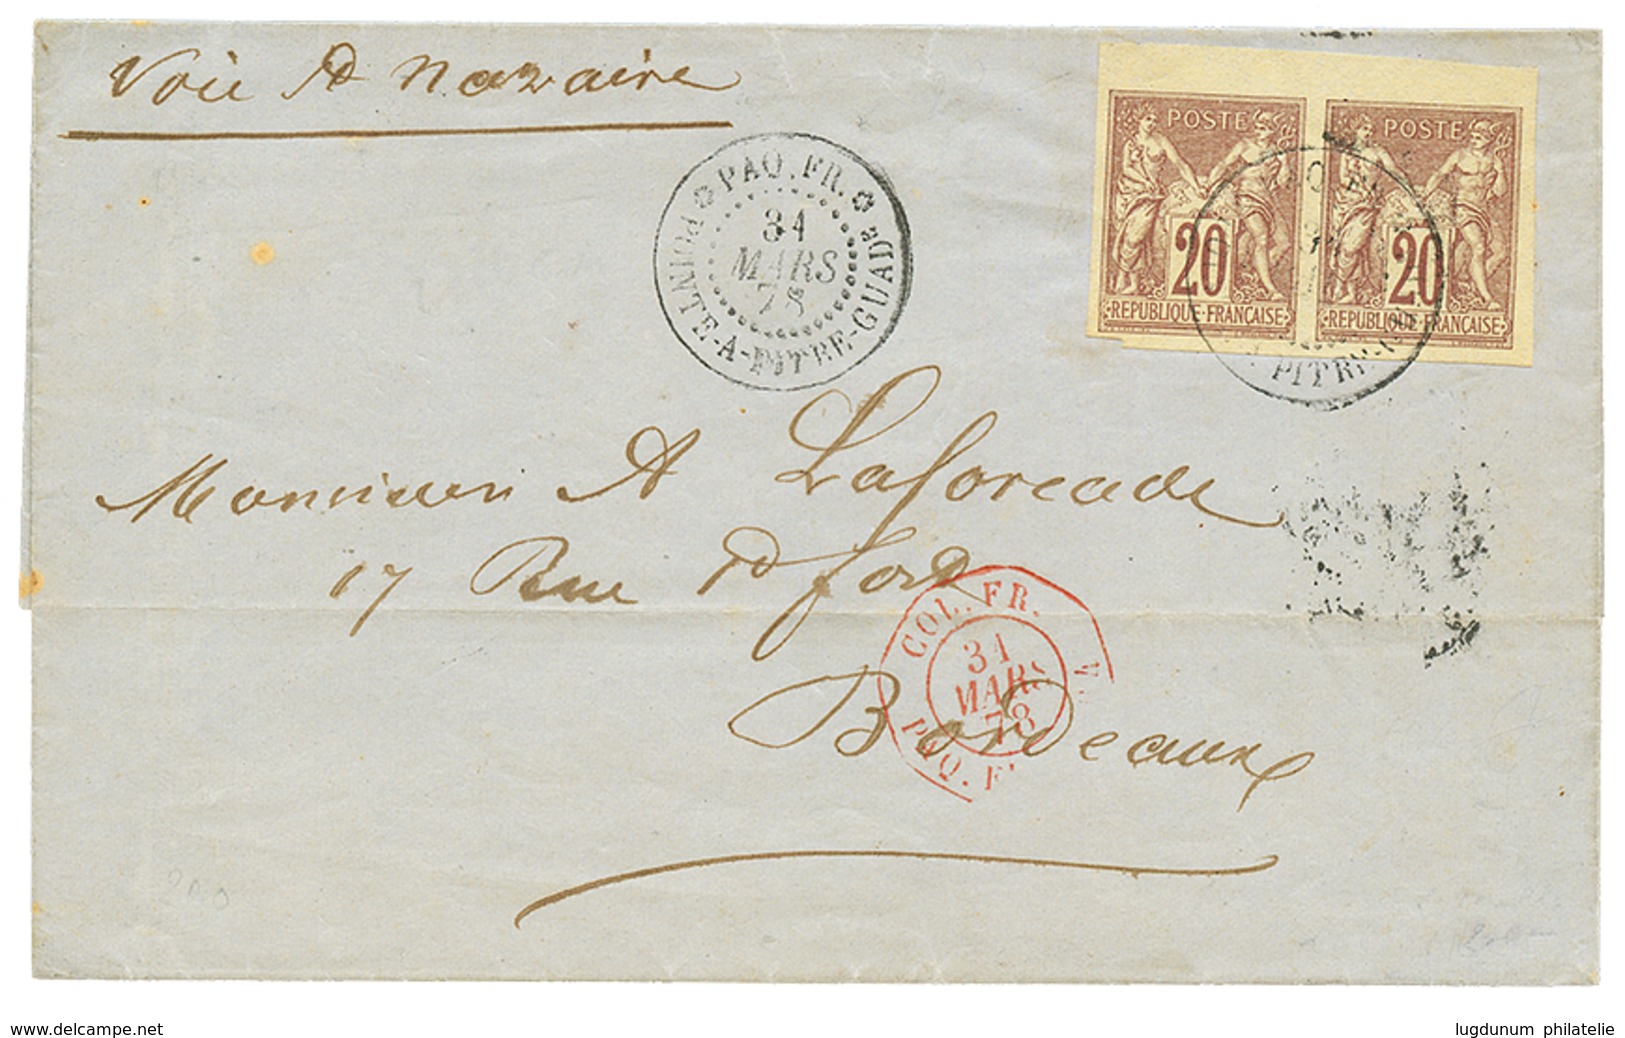 Voie St Nazaire
PAQ. FR.
POINTE-A-PITRE-GUADe
31
MARS
78
POSTE
20
REPUBLIQUE·FRANÇAISE
POSTE
20
REPUBLIQUE·FRANÇAISE
PITRE
Monsieur A Laforcade
17 Rue
Bordeaux
COL. FR.
31
MARS
78
PAQ. F
www.delcampe.net
lugdunum philatelie